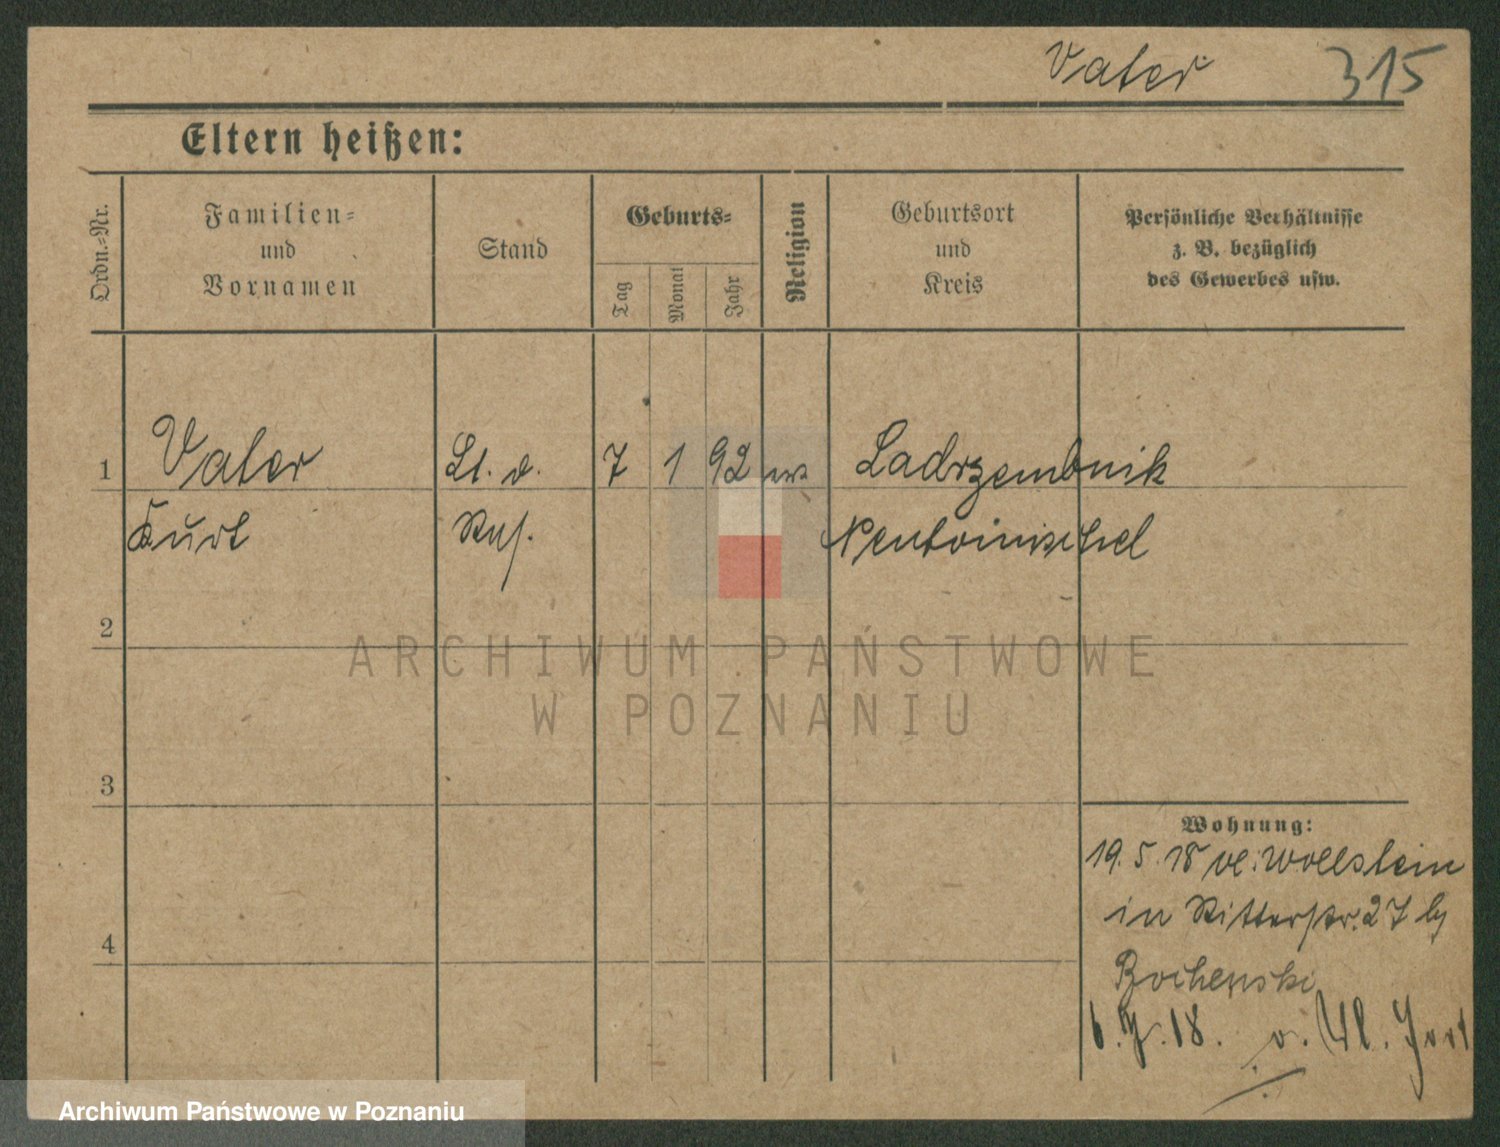 Vater 315
Eltern heißen:
Ordn.-Nr.
Familien-
und
Vornamen
Stand
Geburts-
Tag
Monat
Jahr
Religion
Geburtsort
und
Kreis
Persönliche Verhältnisse
z. B. bezüglich
des Gewerbes usw.
1 Vater Lt. d. 7 1 92 Ladrzembnik
Kurt Res. Neutomischel
2
3
4
Wohnung:
19. 5. 18 Wollstein
in Ritterstr. 27
Bochenski
18.
ARCHIWUM PAŃSTWOWE
W POZNANIU
Archiwum Państwowe w Poznaniu